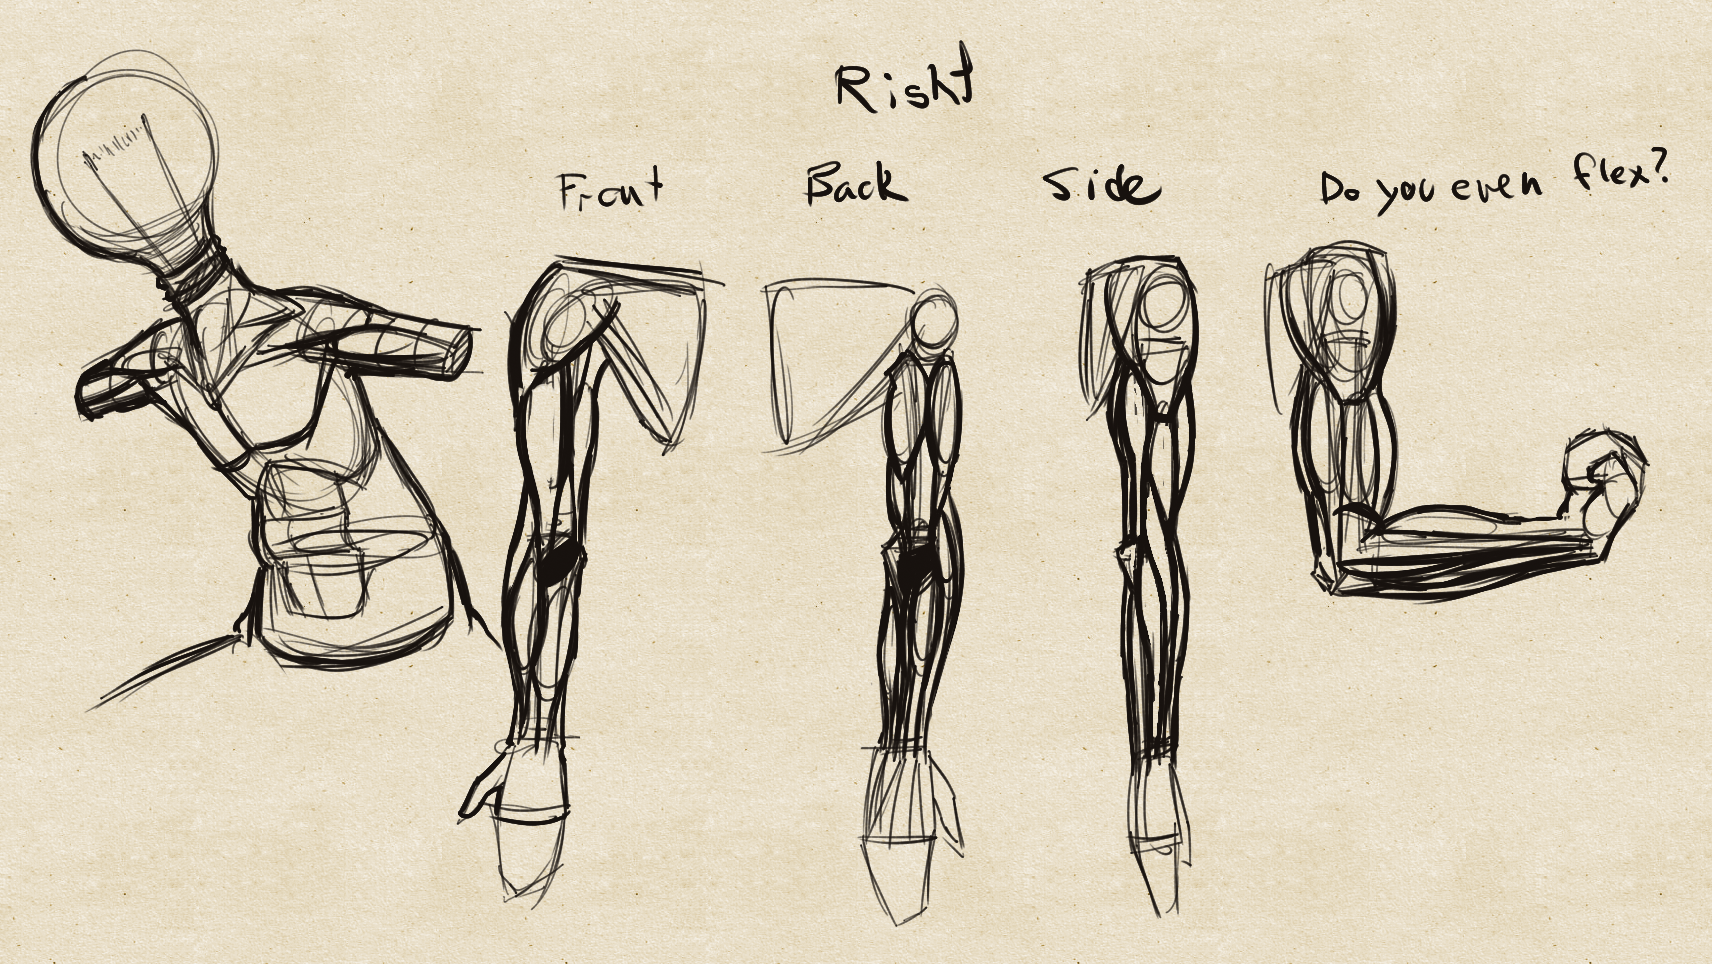 Right
Front Back Side Do you even flex?